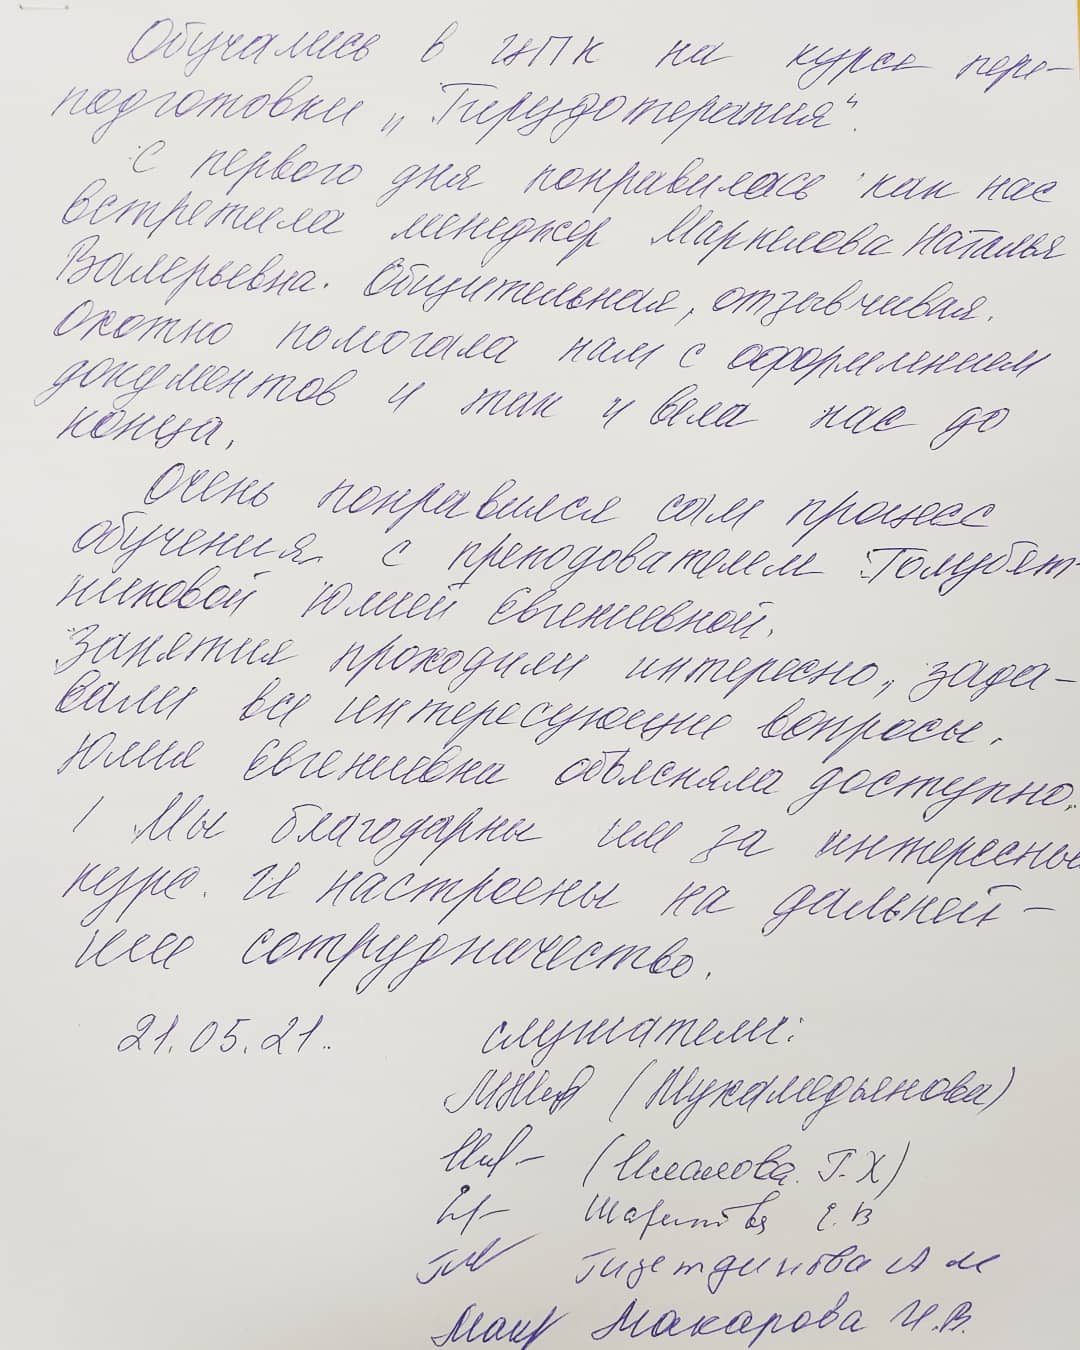 Обучались в ЦПК на курсе пере-
подготовки „Гирудотерапия“.
С первого дня понравилась как нас
встретила менеджер Маркелова Наталья
Валерьевна. Общительная, отзывчивая.
Охотно помогала нам с оформлением
документов и так и вела нас до
конца.
Очень понравился сам процесс
обучения с преподователем Голубят-
никовой Юлией Евгениевной.
Занятия проходили интересно, зада-
вали все интересующие вопросы.
Юлия Евгениевна объясняла доступно.
Мы благодарны им за интересный
курс. И настроены на дальней-
шее сотрудничество.
21.05.21.
слушатели:
(Мухамедьянова)
(Имамова Г.Х)
Шарипова Е.В
Гизетдинова А М
Макарова И.В.